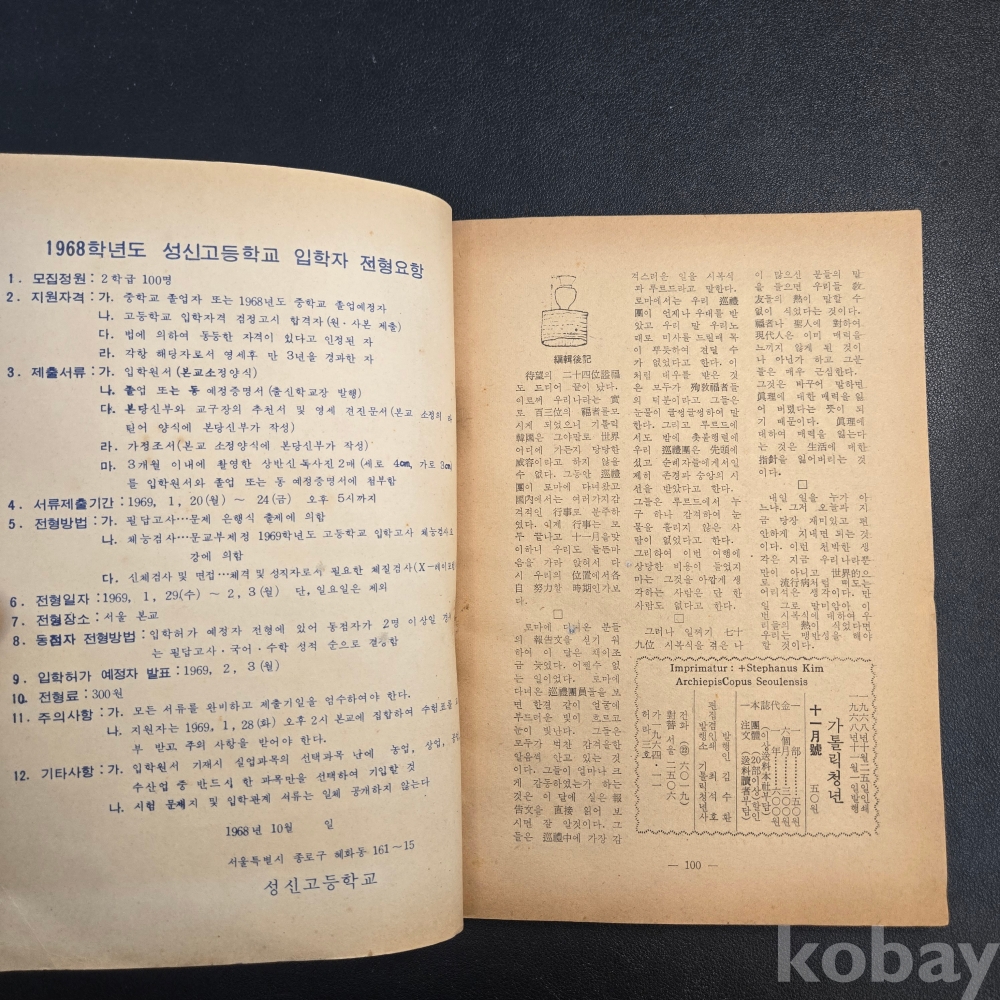 1968학년도 성신고등학교 입학자 전형요항
1. 모집정원 : 2학급 100명
2. 지원자격 : 가. 중학교 졸업자 또는 1968년도 중학교 졸업예정자
나. 고등학교 입학자격 검정고시 합격자(원·사본 제출)
다. 법에 의하여 동등한 자격이 있다고 인정된 자
라. 각항 해당자로서 영세후 만 3년을 경과한 자
3. 제출서류 : 가. 입학원서(본교소정양식)
나. 졸업 또는 동 예정증명서(출신학교장 발행)
다. 본당신부와 교구장의 추천서 및 영세 견진문서(본교 소정의 라
틴어 양식에 본당신부가 작성)
라. 가정조서(본교 소정양식에 본당신부가 작성)
마. 3개월 이내에 촬영한 상반신독사진2매(세로 4cm, 가로 3cm)
를 입학원서와 졸업 또는 동 예정증명서에 첨부함
4. 서류제출기간 : 1969, 1, 20(월) ~ 24(금) 오후 5시까지
5. 전형방법 : 가. 필답고사…문제 은행식 출제에 의함
나. 체능검사…문교부제정 1969학년도 고등학교 입학고사 체능검사요
강에 의함
다. 신체검사 및 면접…체격 및 성직자로서 필요한 체질검사(X-레이포
6. 전형일자 : 1969, 1, 29(수) ~ 2, 3(월) 단, 일요일은 제외
7. 전형장소 : 서울 본교
8. 동점자 전형방법 : 입학허가 예정자 전형에 있어 동점자가 2명 이상일
는 필답고사·국어·수학 성적 순으로 결정함
9. 입학허가 예정자 발표 : 1969, 2, 3(월)
10. 전형료 : 300원
11. 주의사항 : 가. 모든 서류를 완비하고 제출기일을 엄수하여야 한다.
나. 지원자는 1969, 1, 28(화) 오후 2시 본교에 집합하여 수험표를
부 받고 주의 사항을 받아야 한다.
12. 기타사항 : 가. 입학원서 기재시 실업과목의 선택과목 난에 농업, 상업, 공
수산업 중 반드시 한 과목만을 선택하여 기입할 것
나. 시험 문제지 및 입학관계 서류는 일체 공개하지 않는다.
1968년 10월 일
서울특별시 종로구 혜화동 161~15
성신고등학교
編輯後記
待望의 二十四位證福
도 드디어 끝이 났다.
이로써 우리나라는 實
로 百三位의 福者들모
시게 되었으니 기톨릭
韓國은 그야말로 世界
어디에 가든지 당당한
威容이라고 하지 않을
수 없다. 그동안 巡禮
團이 로마에 다녀왔고
國內에서는 여러가지감
격적인 行事로 분주하
였다. 이제 行事는 모
두 끝나고 十一月을맞
이하니 우리도 들뜬마
음을 가라 앉혀서 다
시 우리의 位置에서各
自 努力할 時期인가보
다.
□
로마에 다녀온 분들
의 報告文을 싣기 위
하여 이 달은 책이조
금 늦었다. 어쩔수 없
는 일이었다. 로마에
다녀온 巡禮團員들을 보
면 한결 같이 얼굴에
부드러운 빛이 흐르고
눈이 맑았다. 그들은
모두가 벅찬 감격을한
아름씩 안고 있는 것
이다. 그들이 얼마나 크
게 감동하였는가 하는
것은 이 달에 실은 報
告文을 直接 읽어 보
시면 잘 알것이다. 그
들은 巡禮中에 가장 감
격스러운 일을 시복식
과 루르드라고 말한다.
로마에서는 우리 巡禮
團이 언제나 우대를 받
았고 우리 말 우리노
래로 미사를 드릴때 목
이 뿌듯하여 견딜 수
가 없었다고 한다. 이
처럼 대우를 받은 것
은 모두가 殉敎福者들
의 덕분이라고 그들은
눈물이 글썽글썽하여 말
한다. 그리고 루르드에
서도 밤에 촛불행렬에
우리 巡禮團은 先頭에
섰고 순례자들에게서일
제히 존경과 숭앙의 시
선을 받았다고 한다.
그들은 루르드에서 누
구 하나 감격하여 눈
물을 흘리지 않은 사
람이 없었다고 한다.
그리하여 이번 여행에
상당한 비용이 들었지
마는 그것을 아깝게 생
각하는 사람은 단 한
사람도 없다고 한다.
□
그러나 일찌기 七十
九位 시복식을 겪은 나
이 많으신 분들의 말
을 들으면 우리들 敎
友들의 熱이 말할 수
없이 식었다는 것이다.
福者나 聖人에 對하여
現代人은 이미 매력을
느끼지 않게 된 것이
나 아닌가 하고 그분
들은 매우 근심한다.
그것은 바꾸어 말하면
眞理에 대한 매력을 잃
어 버렸다는 뜻이 되
기 때문이다. 眞理에
대하여 매력을 잃는다
는 것은 生活에 대한
指針을 잃어버리는 것
이다.
□
내일 일을 누가 아
느냐. 그저 오늘과 지
금 당장 재미있고 편
안하게 지내면 되는 것
이다. 이런 천박한 생
각은 지금 우리나라뿐
만이 아니고 世界的으
로 流行病처럼 떠도는
어리석은 생각이다. 만
일 그로 말미암아 이
번 시복식에 대하여 우
리들의 熱이 식었다면
우리는 맹반성을 해야
할 것이다.
Imprimatur : +Stephanus Kim
ArchiepisCopus Seoulensis
一九六八年十月二五일인쇄
一九六八년十一월一일발행
가톨릭 청년
十一月號 五〇원
一部……五〇원
六個月……三〇〇원
一年……六〇〇원
(이상送料本社부담)
團體(20部이상)할인
注文(送料讀者부담)
발행인 김수환
편집겸인쇄 최석호
발행소 기톨릭청년사
전화 ㉒ 六〇一九
對替 서울 二五〇六
허가 一九六四·一·一
라 三호
— 100 —
kobay